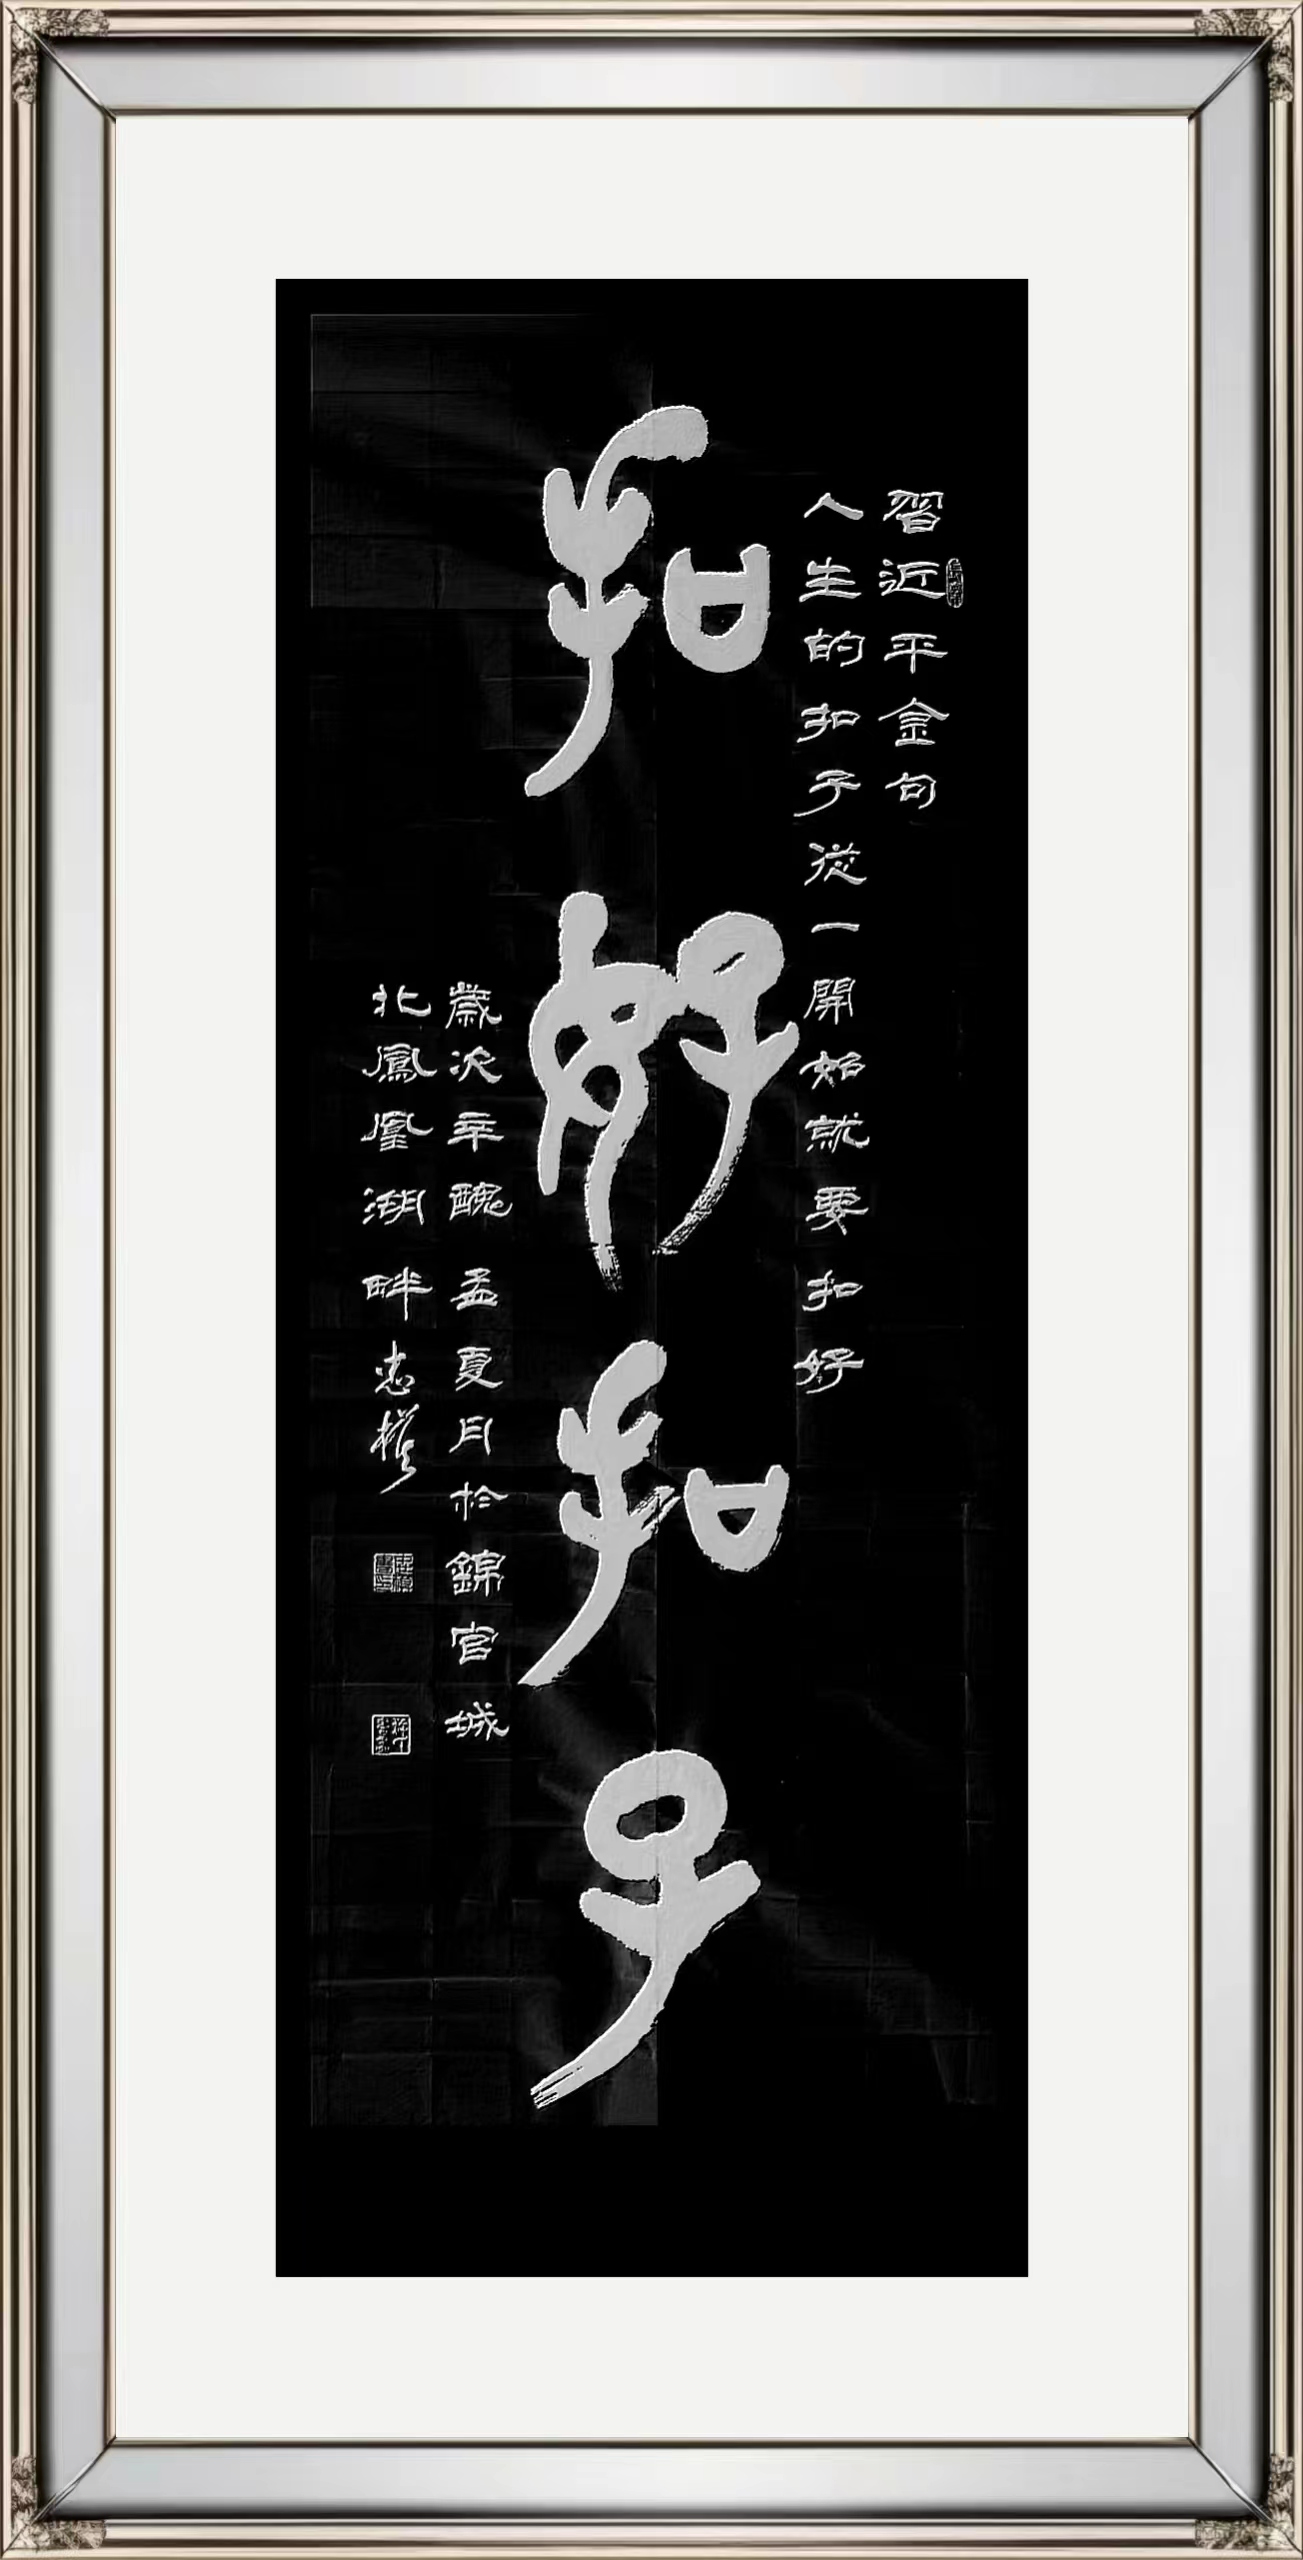 習近平金句
人生的扣子從一開始就要扣好
扣好扣子
歲次辛醜孟夏月於錦官城
北鳳凰湖畔忠